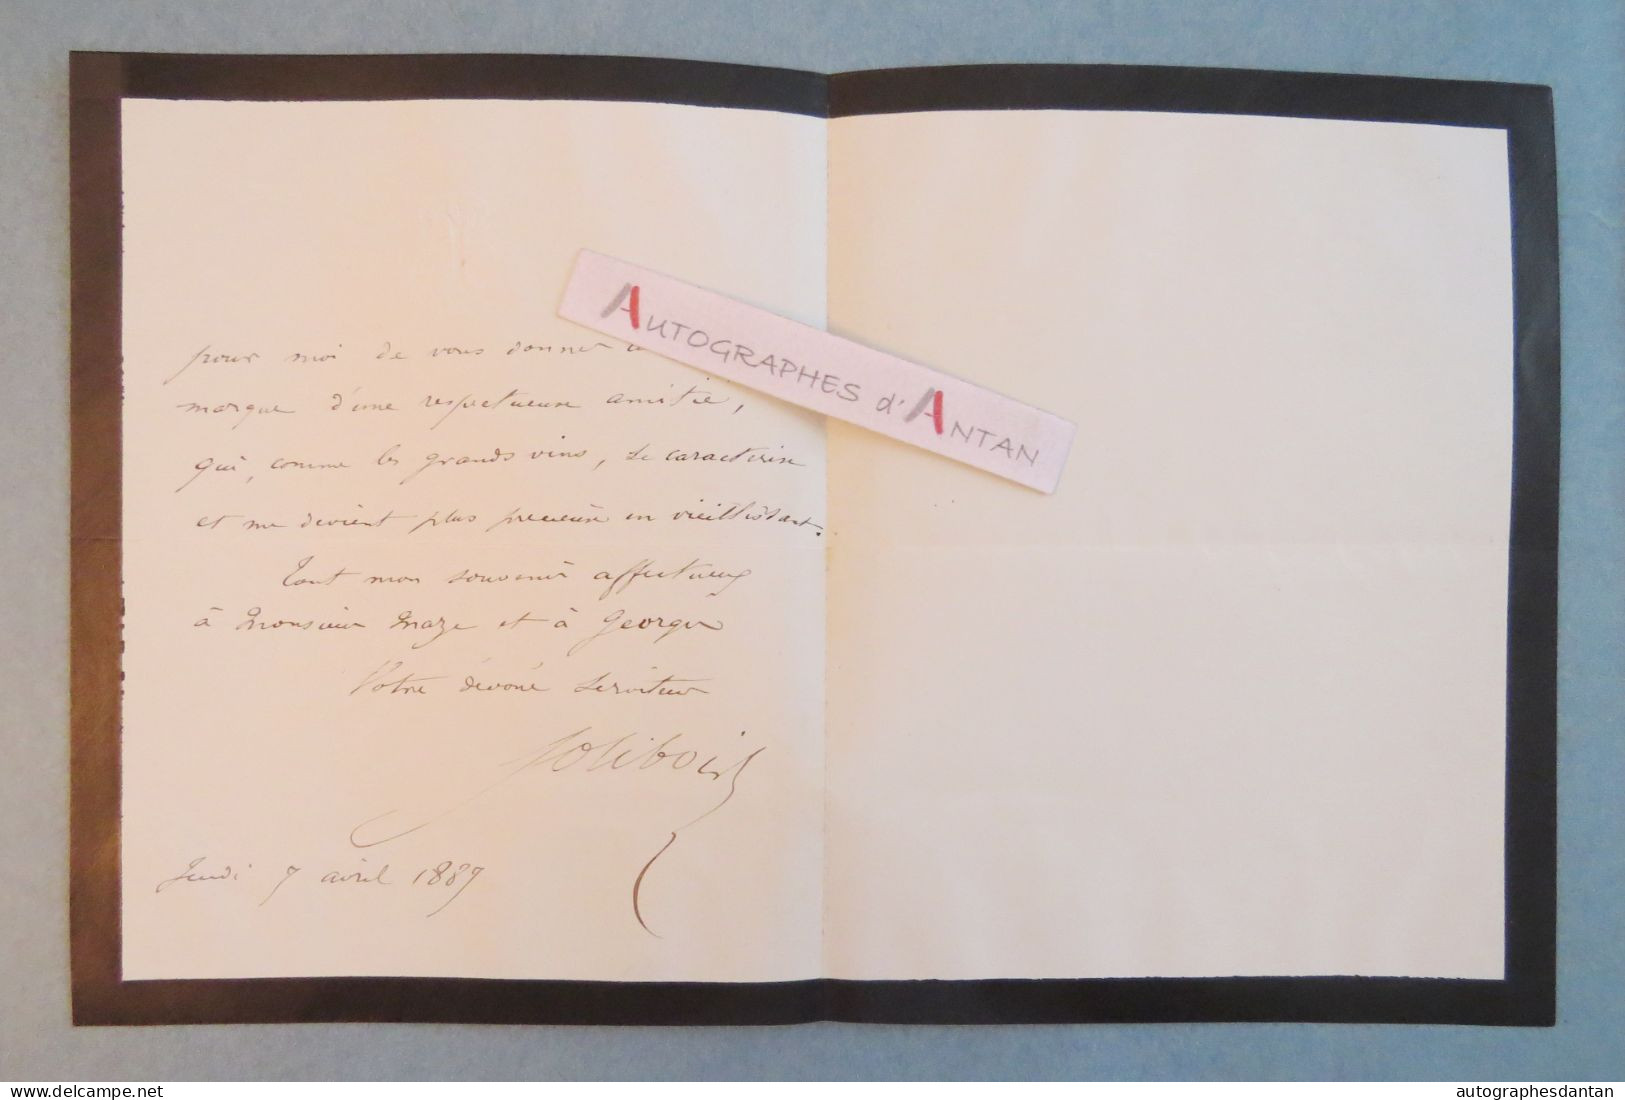 pour moi de vous donner
marque d'une respectueuse amitié,
qui, comme les grands vins, se caractérise
et me devient plus précieuse en vieillissant.
Tout mon souvenir affectueux
à Monsieur Maze et à George
Votre dévoué serviteur
Jolibois
Jeudi 7 avril 1887
AUTOGRAPHES d'ANTAN
www.delcampe.net
autographesdantan